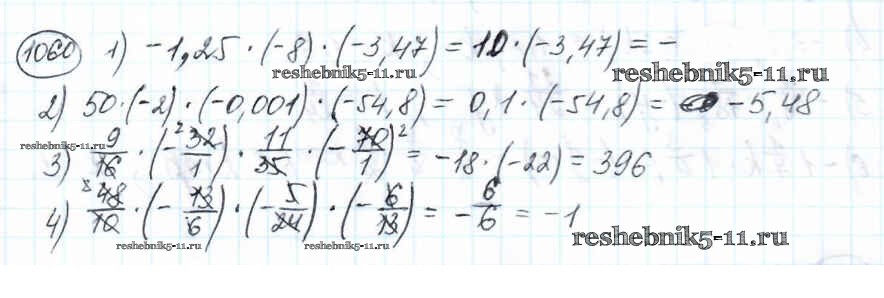 1060 1) -1,25 · (-8) · (-3,47) = 10 · (-3,47) = -
reshebnik5-11.ru reshebnik5-11.ru
2) 50·(-2) · (-0,001) · (-54,8) = 0,1 · (-54,8) = -5,48
reshebnik5-11.ru
3) 9/16 · (-32/1) · 11/35 · (-70/1) = -18 · (-22) = 396
2 2
4) 48/10 · (-13/6) · (-5/24) · (-6/13) = -6/6 = -1
8
reshebnik5-11.ru reshebnik5-11.ru reshebnik5-11.ru